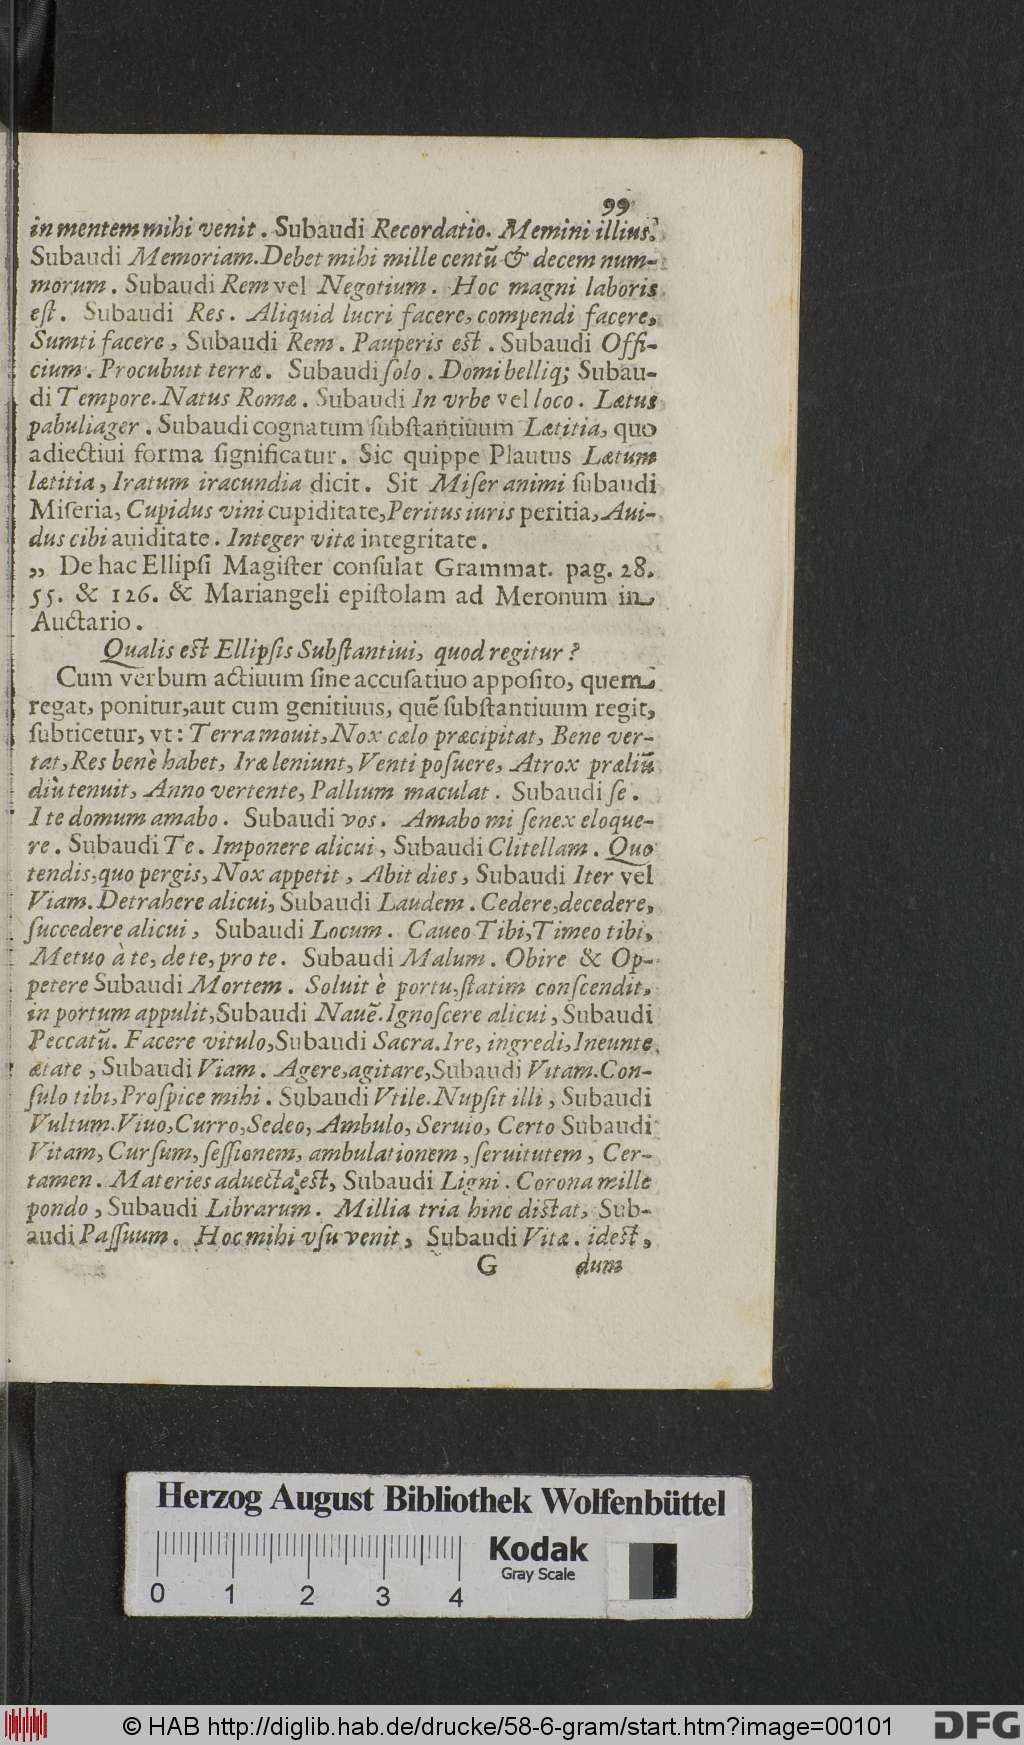 99
in mentem mihi venit. Subaudi Recordatio. Memini illius.
Subaudi Memoriam. Debet mihi mille centũ & decem num-
morum. Subaudi Rem vel Negotium. Hoc magni laboris
eſt. Subaudi Res. Aliquid lucri facere, compendi facere,
Sumti facere, Subaudi Rem. Pauperis eſt. Subaudi Offi-
cium. Procubuit terræ. Subaudi ſolo. Domi belliq; Subau-
di Tempore. Natus Romæ. Subaudi In vrbe vel loco. Lætus
pabuli ager. Subaudi cognatum ſubſtantiuum Lætitia, quo
adiectiui forma ſignificatur. Sic quippe Plautus Lætum
lætitia, Iratum iracundia dicit. Sit Miſer animi ſubaudi
Miſeria, Cupidus vini cupiditate, Peritus iuris peritia, Aui-
dus cibi auiditate. Integer vitæ integritate.
„ De hac Ellipſi Magiſter conſulat Grammat. pag. 28.
55. & 126. & Mariangeli epiſtolam ad Meronum in
Auctario.
Qualis eſt Ellipſis Subſtantiui, quod regitur?
Cum verbum actiuum ſine accuſatiuo appoſito, quem
regat, ponitur, aut cum genitiuus, quẽ ſubſtantiuum regit,
ſubticetur, vt: Terra mouit, Nox cælo præcipitat, Bene ver-
tat, Res benè habet, Iræ leniunt, Venti poſuere, Atrox præliũ
diù tenuit, Anno vertente, Pallium maculat. Subaudi ſe.
Ite domum amabo. Subaudi vos. Amabo mi ſenex eloque-
re. Subaudi Te. Imponere alicui, Subaudi Clitellam. Quo
tendis, quo pergis, Nox appetit, Abit dies, Subaudi Iter vel
Viam. Detrahere alicui, Subaudi Laudem. Cedere, decedere,
ſuccedere alicui, Subaudi Locum. Caueo Tibi, Timeo tibi,
Metuo à te, de te, pro te. Subaudi Malum. Obire & Op-
petere Subaudi Mortem. Soluit è portu, ſtatim conſcendit,
in portum appulit, Subaudi Nauẽ. Ignoſcere alicui, Subaudi
Peccatũ. Facere vitulo, Subaudi Sacra. Ire, ingredi, Ineunte
ætate, Subaudi Viam. Agere, agitare, Subaudi Vitam. Con-
ſulo tibi, Proſpice mihi. Subaudi Vtile. Nupſit illi, Subaudi
Vultum. Viuo, Curro, Sedeo, Ambulo, Seruio, Certo Subaudi
Vitam, Curſum, ſeſſionem, ambulationem, ſeruitutem, Cer-
tamen. Materies aduecta eſt, Subaudi Ligni. Corona mille
pondo, Subaudi Librarum. Millia tria hinc diſtat, Sub-
audi Paſſuum. Hoc mihi vſu venit, Subaudi Vitæ. ideſt,
G dum
Herzog August Bibliothek Wolfenbüttel
Kodak
Gray Scale
0 1 2 3 4
© HAB http://diglib.hab.de/drucke/58-6-gram/start.htm?image=00101
DFG